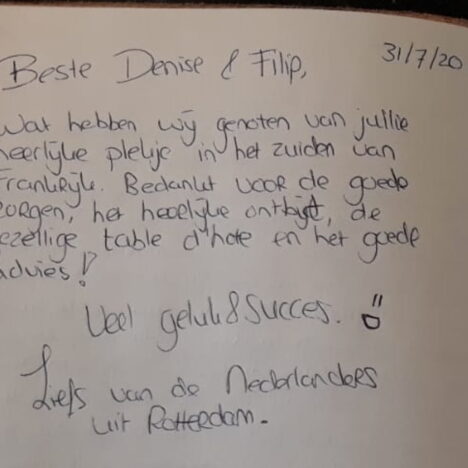 31/7/20
Beste Denise & Filip,
Wat hebben wij genoten van jullie
heerlijke plekje in het zuiden van
Frankrijk. Bedankt voor de goede
zorgen, het heerlijke ontbijt, de
gezellige table d'hote en het goede
advies!
Veel geluk & Succes. :D
Liefs van de Nederlanders
uit Rotterdam.